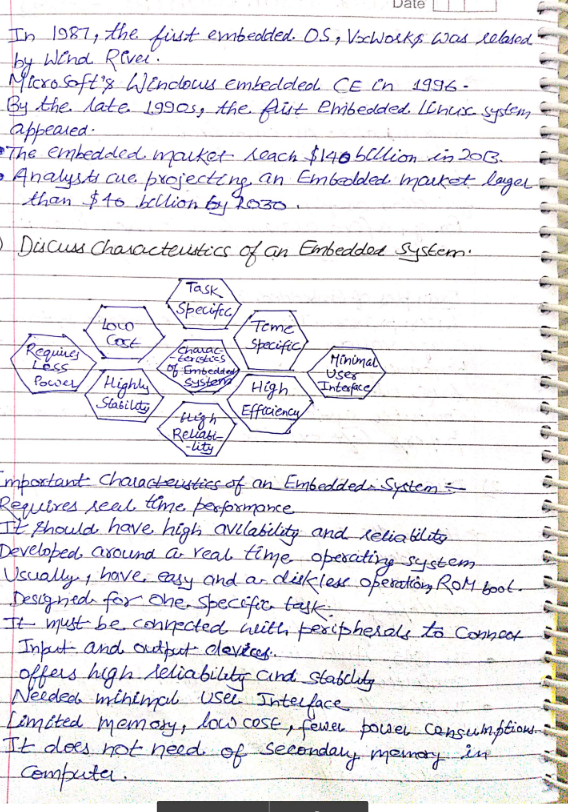 Date
In 1987, the first embedded OS, VxWorks was released
by Wind River.
Microsoft's Windows embedded CE in 1996.
By the late 1990s, the first Embedded Linux system
appeared.
The embedded market reach $140 billion in 2013.
Analysts are projecting an Embedded market larger
than $40 billion by 2030.
Discuss Characteristics of an Embedded System.
Task
Specific
Low
Cost
Time
Specific
Requires
Less
Power
Charac-
-teristics
of Embedded
System
Minimal
User
Interface
Highly
Stability
High
Efficiency
High
Reliabi-
-lity
Important Characteristics of an Embedded System :-
Requires real time performance
It should have high avilability and reliability
Developed around a real time operating system
Usually, have easy and a diskless operation, ROM boot.
Designed for one specific task.
It must be connected with peripherals to Connect
Input and output devices.
offers high reliability and stability
Needed minimal user Interface
Limited memory, low cost, fewer power consumptions.
It does not need of secondary memory in
Computer.